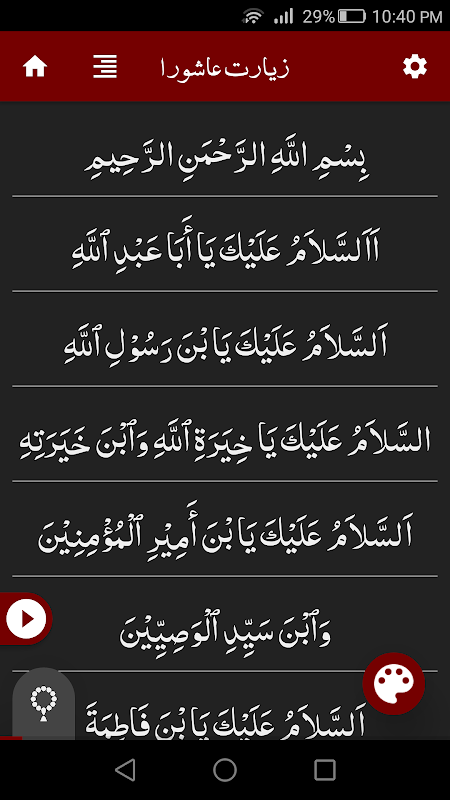 29% 10:40 PM
زیارت عاشورا
بِسْمِ اللَّهِ الرَّحْمَنِ الرَّحِيمِ
اَاَلسَّلاَمُ عَلَيْكَ يَا أَبَا عَبْدِ ٱللَّهِ
اَلسَّلاَمُ عَلَيْكَ يَا بْنَ رَسُوْلِ ٱللَّهِ
السَّلاَمُ عَلَيْكَ يَا خِيَرَةِ ٱللَّهِ وَٱبْنَ خَيَرَتِهِ
اَلسَّلاَمُ عَلَيْكَ يَا بْنَ أَمِيْرِ ٱلْمُؤْمِنِيْنَ
وَٱبْنَ سَيِّدِ ٱلْوَصِيِّيْنَ
اَلسَّلاَمُ عَلَيْكَ يَا بْنَ فَاطِمَةَ